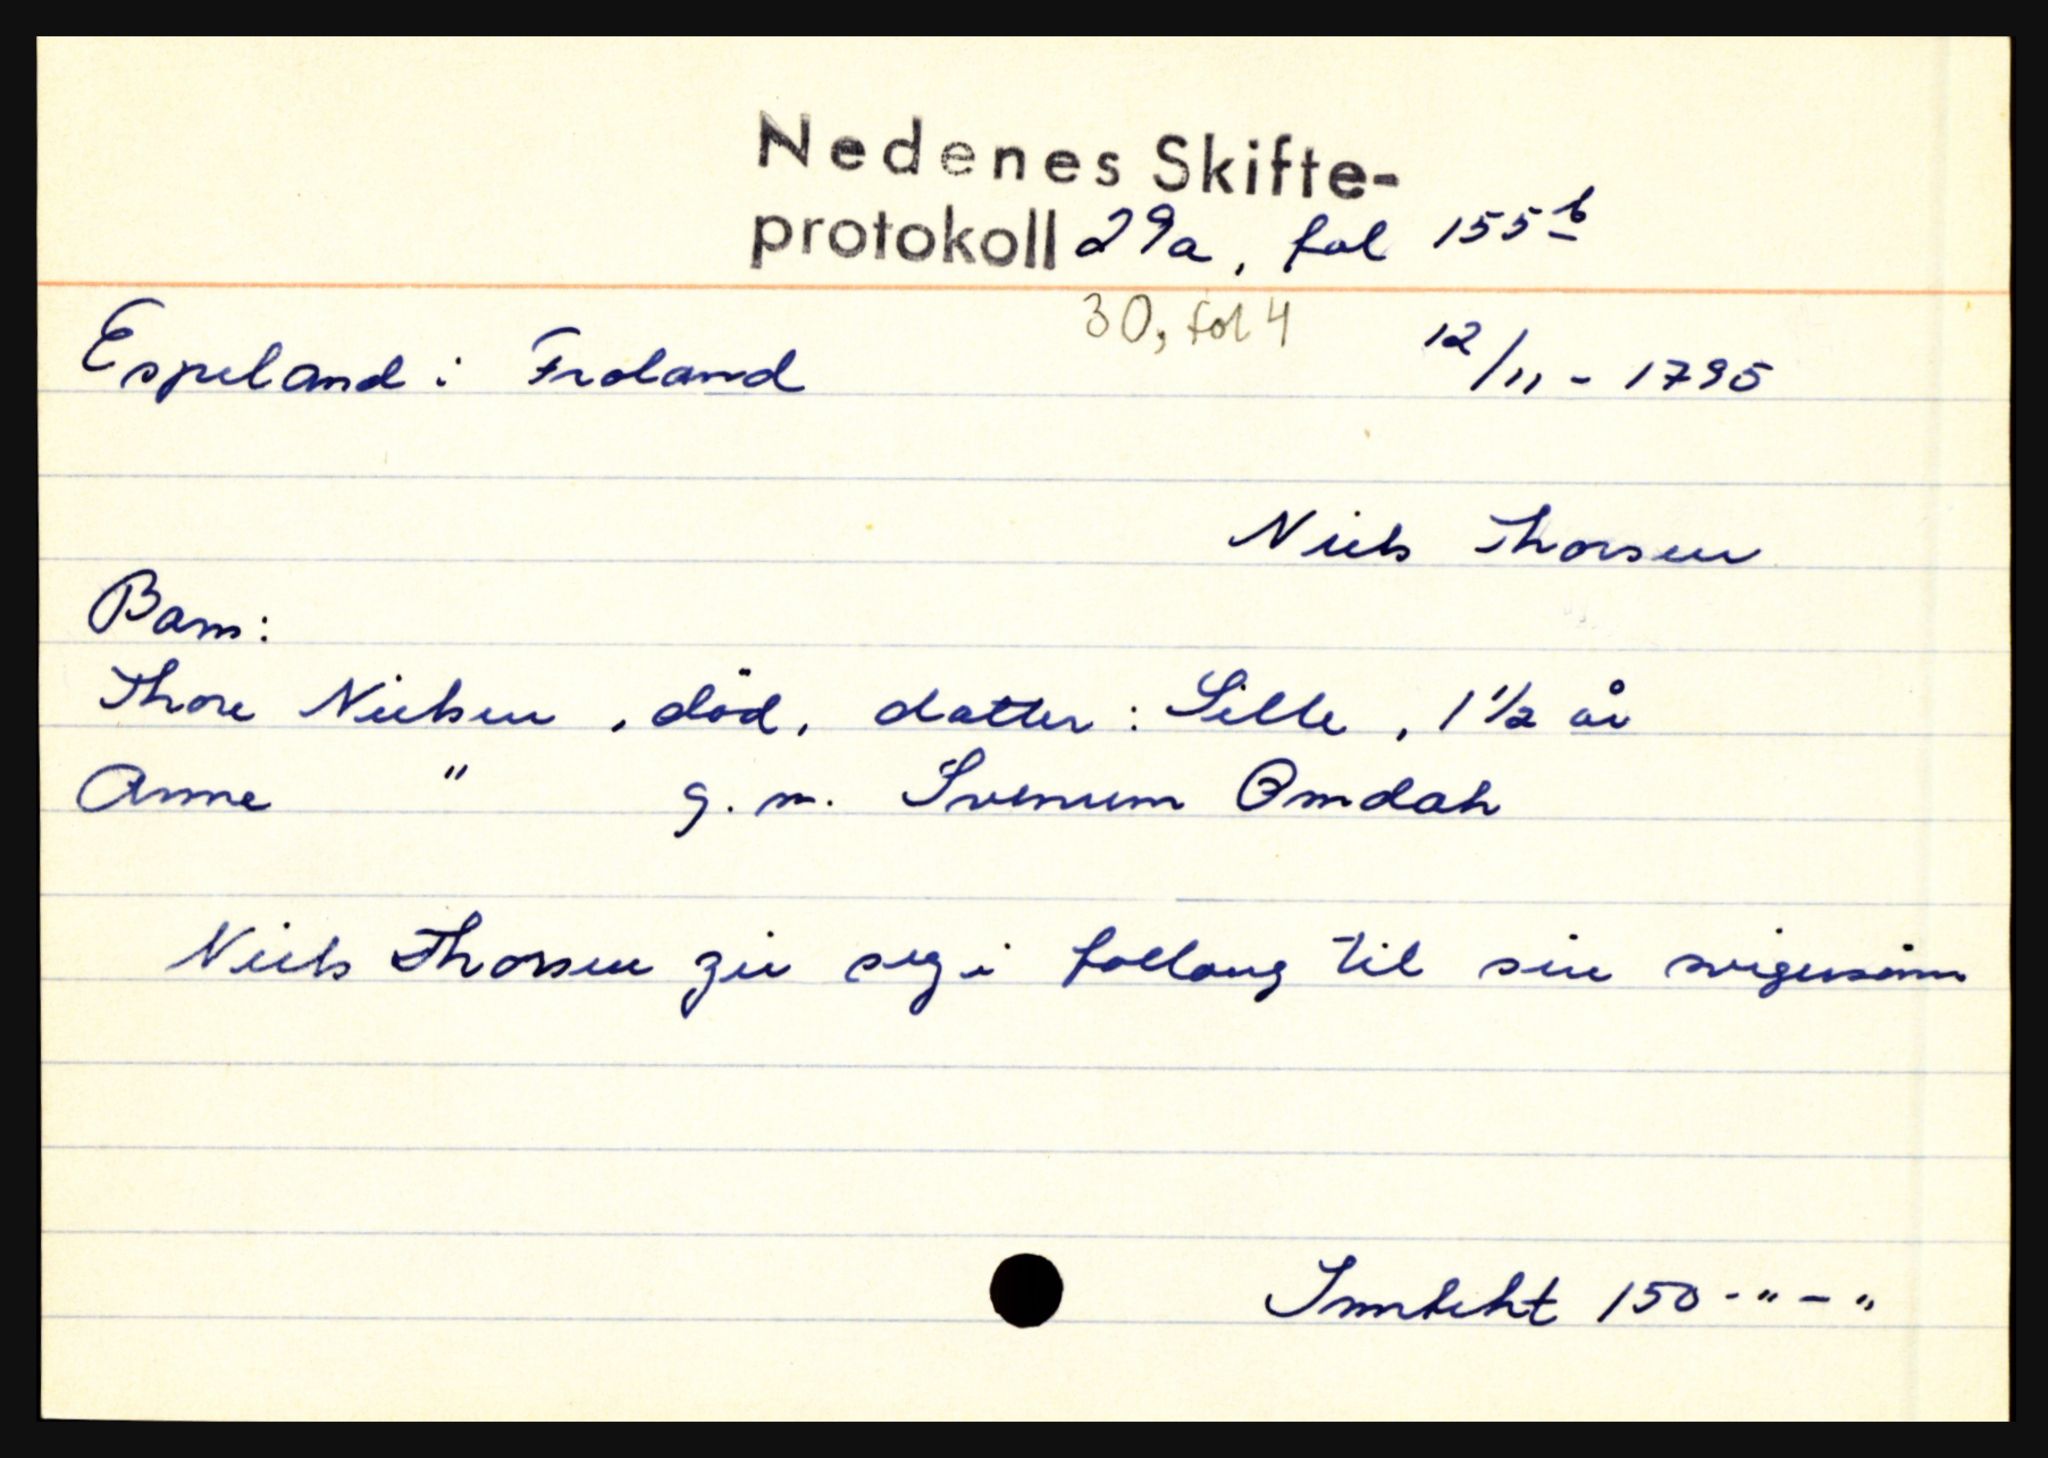 Nedenes Skifte-
protokoll 29a, fol 155b
30, fol 4
Espeland i Froland 12/11 - 1795
Niels Thorsen
Barn:
Thore Nielsen, død, datter: Sille, 1 1/2 år
Anne " g. m. Svenum Omdal
Niels Thorsen gir seg i follaug til sin svigersønn
Inntekt 150 - " - "